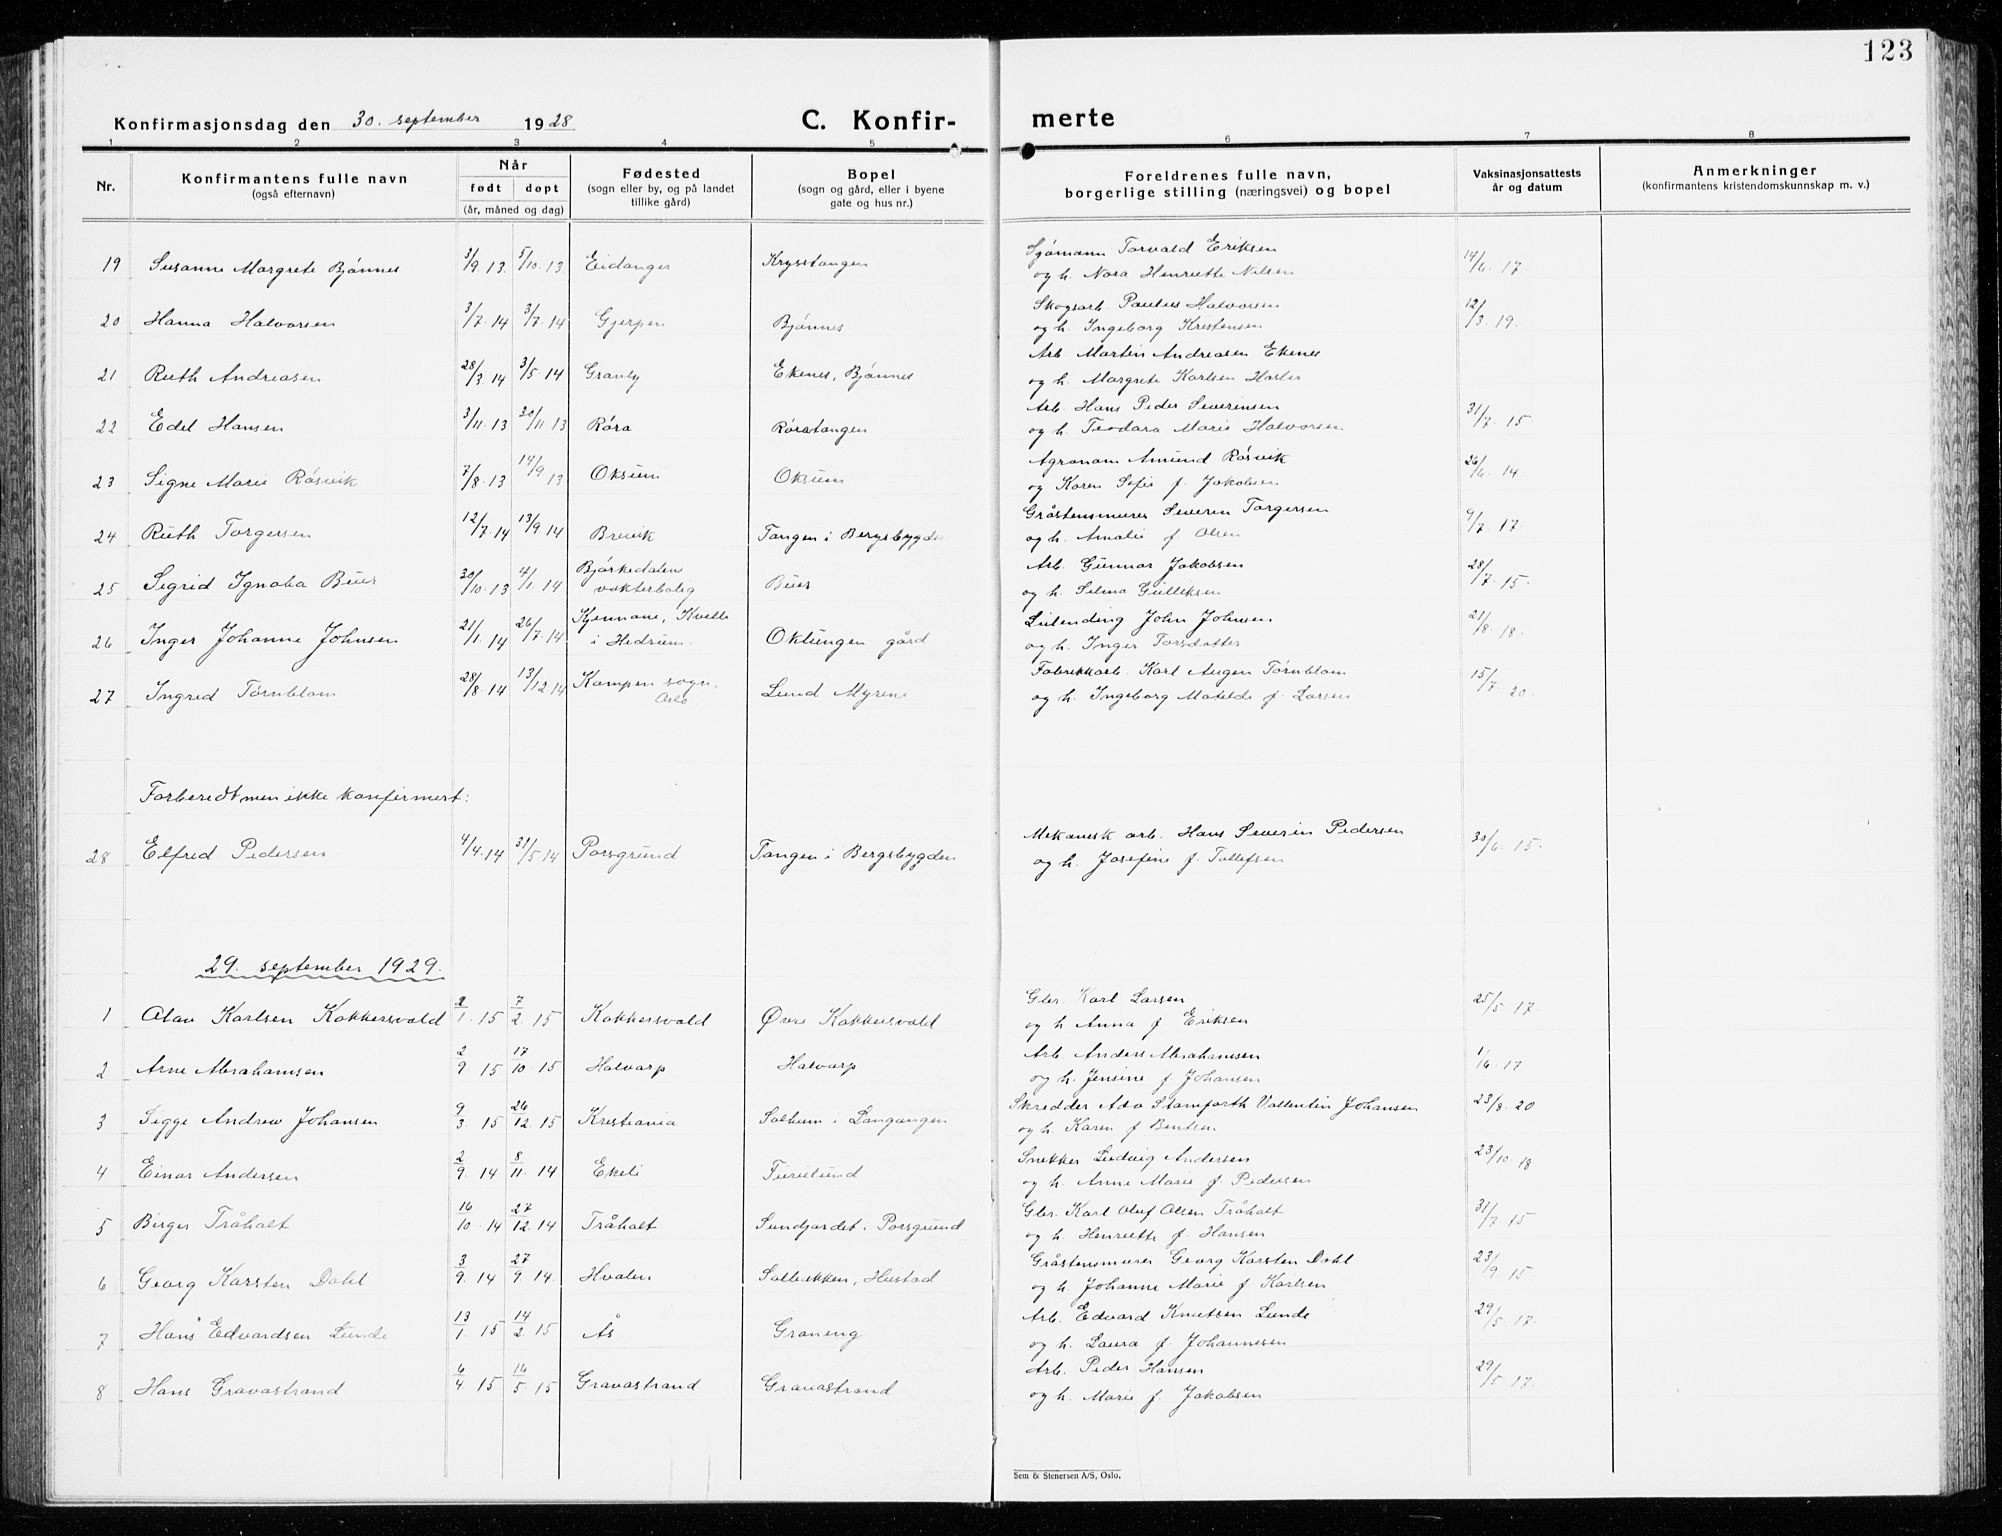 123
Konfirmasjonsdag den 30. september 1928 C. Konfir- merte
1 2 3 4 5 6 7 8
Nr. Konfirmantens fulle navn (også efternavn) Når født døpt (år, måned og dag) Fødested (sogn eller by, og på landet tillike gård) Bopel (sogn og gård, eller i byene gate og hus nr.) Foreldrenes fulle navn, borgerlige stilling (næringsvei) og bopel Vaksinasjonsattests år og datum Anmerkninger (konfirmantens kristendomskunnskap m. v.)
19 Susanne Margrete Bjønnes 3/9. 13. 5/10. 13. Eidanger Krysstangen Sjømann Torvald Eriksen 14/6. 17.
og h. Nora Henriette Nilsen
20 Hanna Halvorsen 3/7. 14 3/7. 14 Gjerpen Bjønnes Skogsarb. Paulus Halvorsen 12/3. 19.
og h. Ingeborg Kristensen
21 Ruth Andreasen 28/3. 14 3/5. 14 Granly Ekenes, Bjønnes Arb. Martin Andreasen Ekenes
og h. Margrete Karlsen
22 Edel Hansen 3/11. 13 30/11. 13 Røra Røratangen Arb. Hans Peder Severinsen 31/7. 15.
og h. Teodora Marie Halvorsen
23 Signe Marie Røsvik 7/8. 13 14/9 13 Oksum Oksum Agronom Amund Røsvik 26/6. 14.
og Karen Sofie f. Jakobsen
24 Ruth Torgersen 12/7. 14 13/9. 14 Brevik Tangen i Bergsbygden Gråstensmurer Severin Torgersen 9/7. 17.
og h. Amalie f. Olsen
25 Sigrid Ignoba Buer 30/10. 13 4/1. 14 Bjørkedalens vokterbolig Buer Arb. Gunnar Jakobsen 28/7. 15.
og h. Selma Gulliksen
26 Inger Johanne Johnsen 21/1. 14 26/7. 14 Kjennane, Kvelle i Hedrum. Oklungen gård Leilending John Johnsen 21/8. 18.
og h. Inger Torsdatter
27 Ingrid Törnblom 28/8. 14 13/12. 14 Kampen sogn, Oslo Lund Myrene Fabrikkarb. Karl Augen Törnblom 15/7. 20.
og h. Ingeborg Matilde f. Larsen
Forberedt men ikke konfirmert:
28 Elfred Pedersen 4/4. 14 31/5. 14 Porsgrund Tangen i Bergsbygden Mekanisk arb. Hans Severin Pedersen 30/6. 15.
og h. Josefine f. Tollefsen
29. september 1929.
1 Olav Karlsen Kokkersvold 2/1. 15 7/2. 15 Kokkersvold Øvre Kokkersvold Gbr. Karl Larsen 25/5. 17.
og h Anna f. Eriksen
2 Arne Abrahamsen 2/9 15 17/10. 15 Halvarp Halvarp Arb. Anders Abrahamsen 1/6. 17
og h. Jensine f Johansen
3 Sigge Andrew Johansen 9/3. 15 26/12. 15 Kristiania Solheim i Langangen Skredder Ado Stamforth Vallentin Johansen 23/8. 20
og h. Karen f Bentsen
4 Einar Andersen 2/9. 14 8/11. 14 Ekeli Furulund Snekker Ludvig Andersen 23/10. 18
og h. Anne Marie f Pedersen
5 Birger Tråholt 16/10. 14 27/12. 14 Tråholt Sundjordet i Porsgrund Gbr. Karl Oluf Olsen Tråholt 31/7. 15
og h. Henriette f. Hansen
6 Georg Karsten Dahl 3/9. 14 27/9. 14. Hvalen Solbakken, Heistad Gråstensmurer Georg Karsten Dahl 23/9 15.
og h. Johanne Marie f Karlsen
7 Hans Edvardsen Lunde 13/1. 15 14/2. 15 Ås Graneng Arb. Edvard Knutsen Lunde 29/5. 17.
og h. Laura f. Johannesen
8 Hans Gravastrand 6/4. 15 16/5. 15 Gravastrand Gravastrand Arb. Peder Hansen 29/5. 17.
og h. Marie f. Jakobsen
Sem & Stenersen A/S, Oslo.